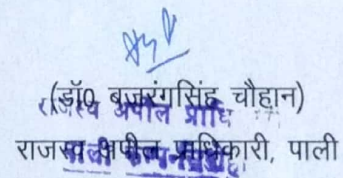 (डॉ0 बजरंगसिंह चौहान)
राजस्व अपील प्राधि
राजस्व अपील प्राधिकारी, पाली